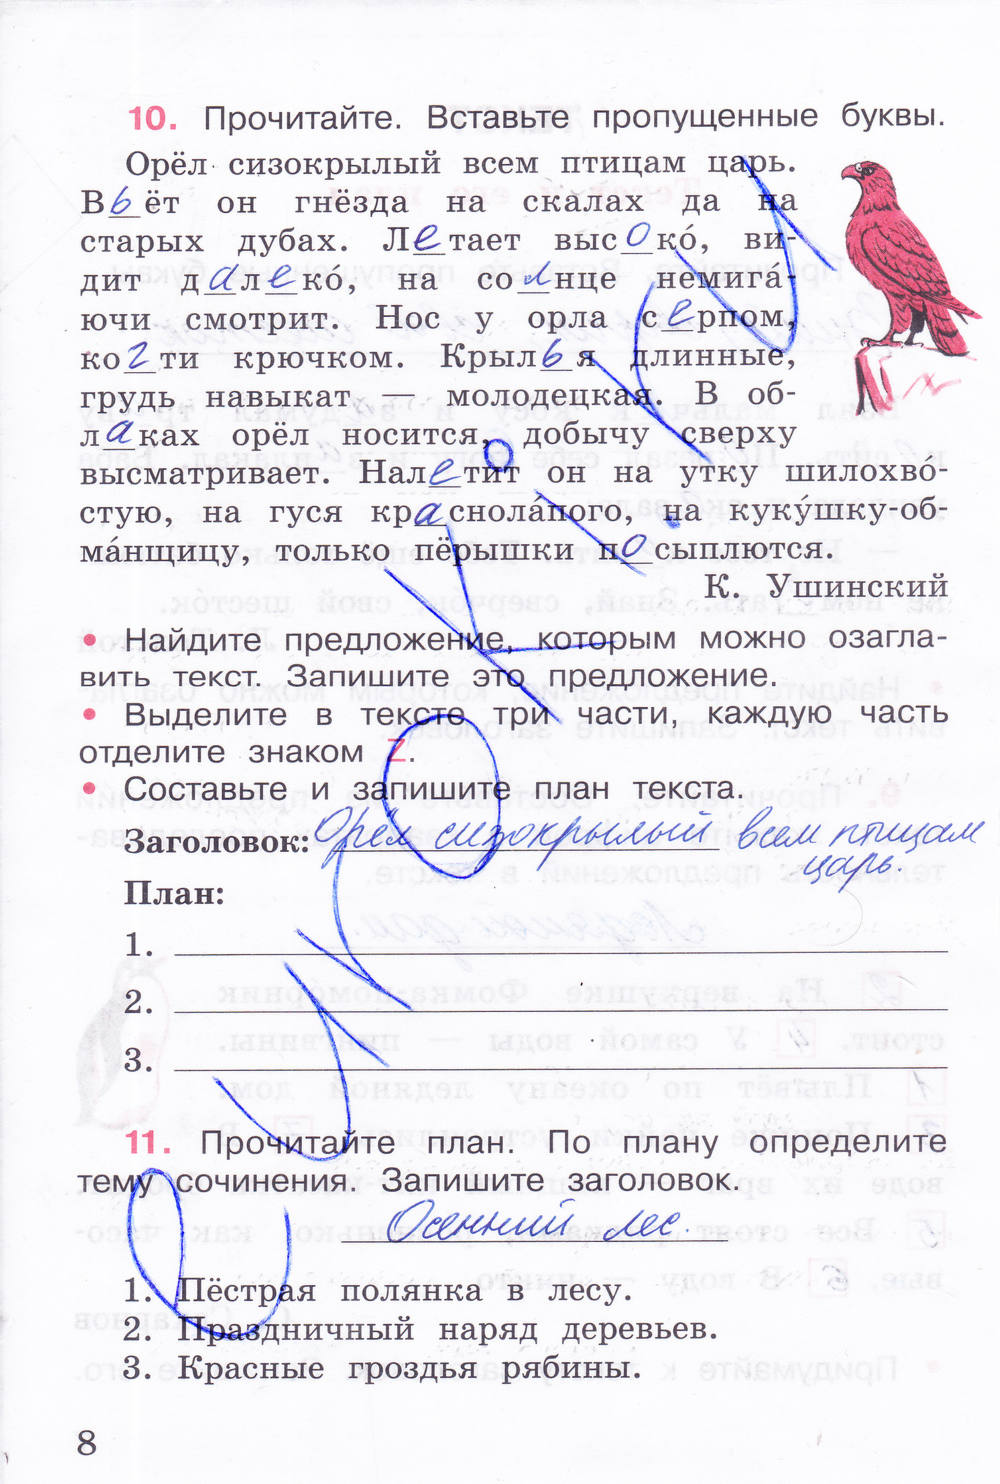 10. Прочитайте. Вставьте пропущенные буквы.
Орёл сизокрылый всем птицам царь.
Вьёт он гнёзда на скалах да на
старых дубах. Летает высоко́, ви-
дит далеко́, на солнце немига́-
ючи смотрит. Нос у орла серпом,
когти крючком. Крылья длинные,
грудь навыкат — молодецкая. В об-
лаках орёл носится, добычу сверху
высматривает. Налетит он на утку шилохво́-
стую, на гуся краснола́пого, на куку́шку-об-
ма́нщицу, только пёрышки посыплются.
К. Ушинский
• Найдите предложение, которым можно озагла-
вить текст. Запишите это предложение.
• Выделите в тексте три части, каждую часть
отделите знаком Z.
• Составьте и запишите план текста.
Заголовок: Орёл сизокрылый всем птицам
царь.
План:
1.
2.
3.
11. Прочитайте план. По плану определите
тему сочинения. Запишите заголовок.
Осенний лес.
1. Пёстрая полянка в лесу.
2. Праздничный наряд деревьев.
3. Красные гроздья рябины.
8